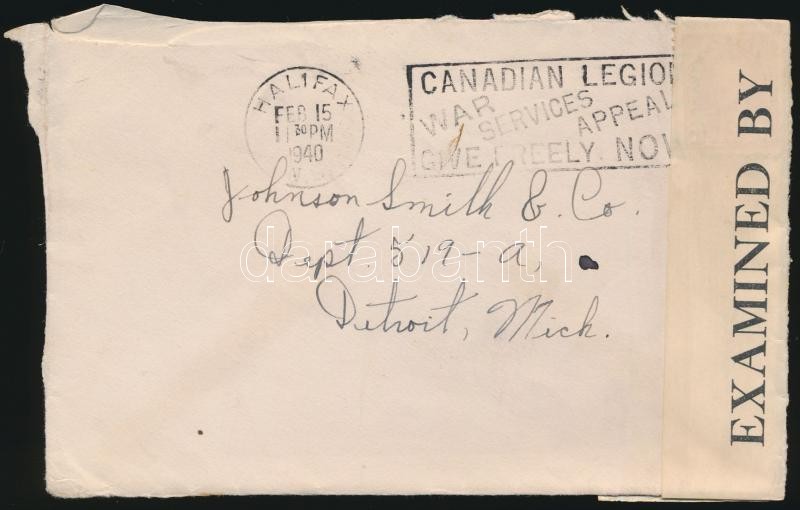 HALIFAX
FEB 15
11 30 PM
1940
CANADIAN LEGION
WAR
SERVICES
APPEAL
GIVE FREELY NOW
Johnson Smith & Co.
Dept. 519-a,
Detroit, Mich.
darabanth
EXAMINED BY